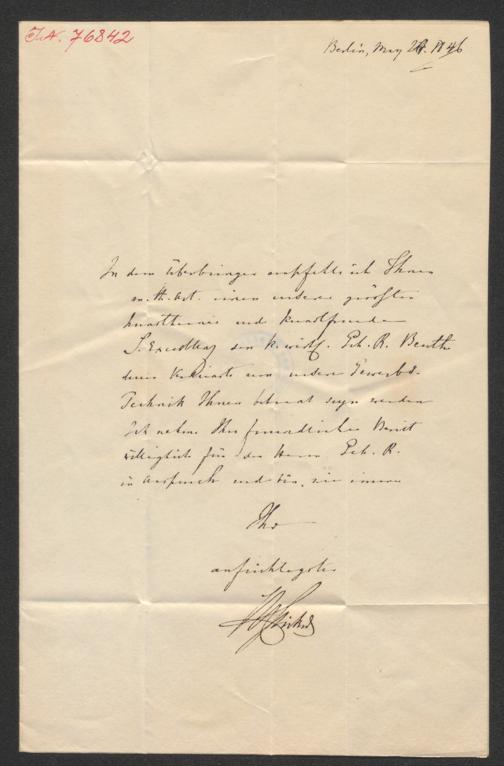 I.N. 76842
Berlin, May 1846
In dem Überbringer empfehle ich Ihnen
einen unserer größten
Kunstkenner und Kunstfreunde
S. Excellenz den k. wirkl. Geh. R. Beuth
dessen Verdienste um unsere Gewerbe-
Technik Ihnen bekannt seyn werden
Ich nehme Ihre freundlichen
für den Herrn Geh. R.
in Anspruch und bin, wie immer
Ihr
aufrichtigster